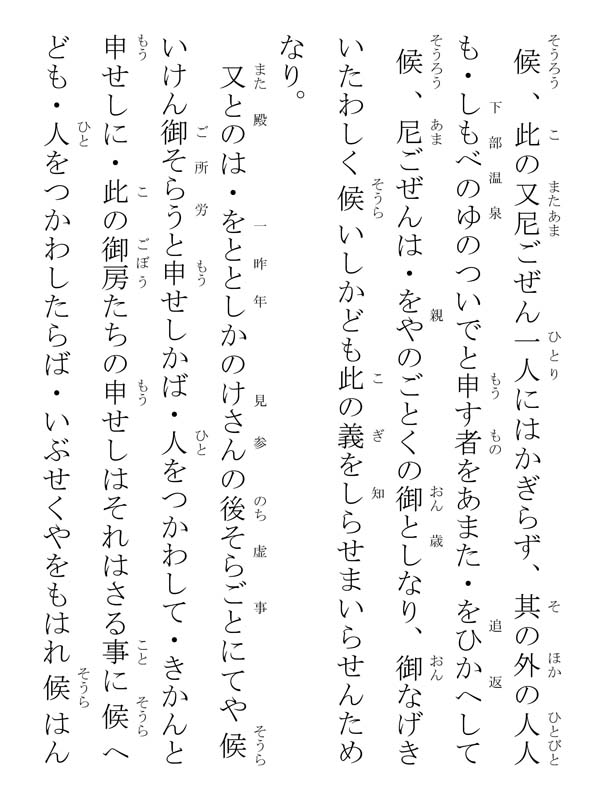 候、此の又尼ごぜん一人にはかぎらず、其の外の人人
も・しもべのゆのついでと申す者をあまた・をひかへして
候、尼ごぜんは・をやのごとくの御としなり、御なげき
いたわしく候いしかども此の義をしらせまいらせんため
なり。
又とのは・をととしかのけさんの後そらごとにてや候
いけん御そらうと申せしかば・人をつかわして・きかんと
申せしに・此の御房たちの申せしはそれはさる事に候へ
ども・人をつかわしたらば・いぶせくやをもはれ候はん